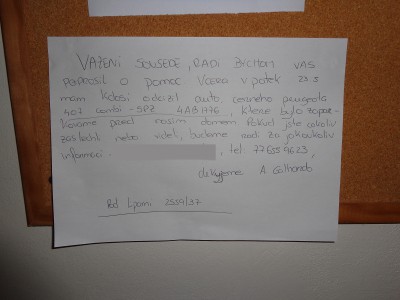 VAŽENÍ SOUSEDÉ, RADI BYCHOM VÁS
POPROSIL O POMOC VČERA V PÁTEK 23.3
nám kdosi odcizil auto černého peugeota
407 combi - SPZ 4AB1776, které bylo zapar-
kované před naším domem. Pokud jste cokoliv
zaslechli nebo viděli, budeme rádi za jakoukoliv
informaci. , tel: 77
děkujeme A.
Pod Lipami 2559/37